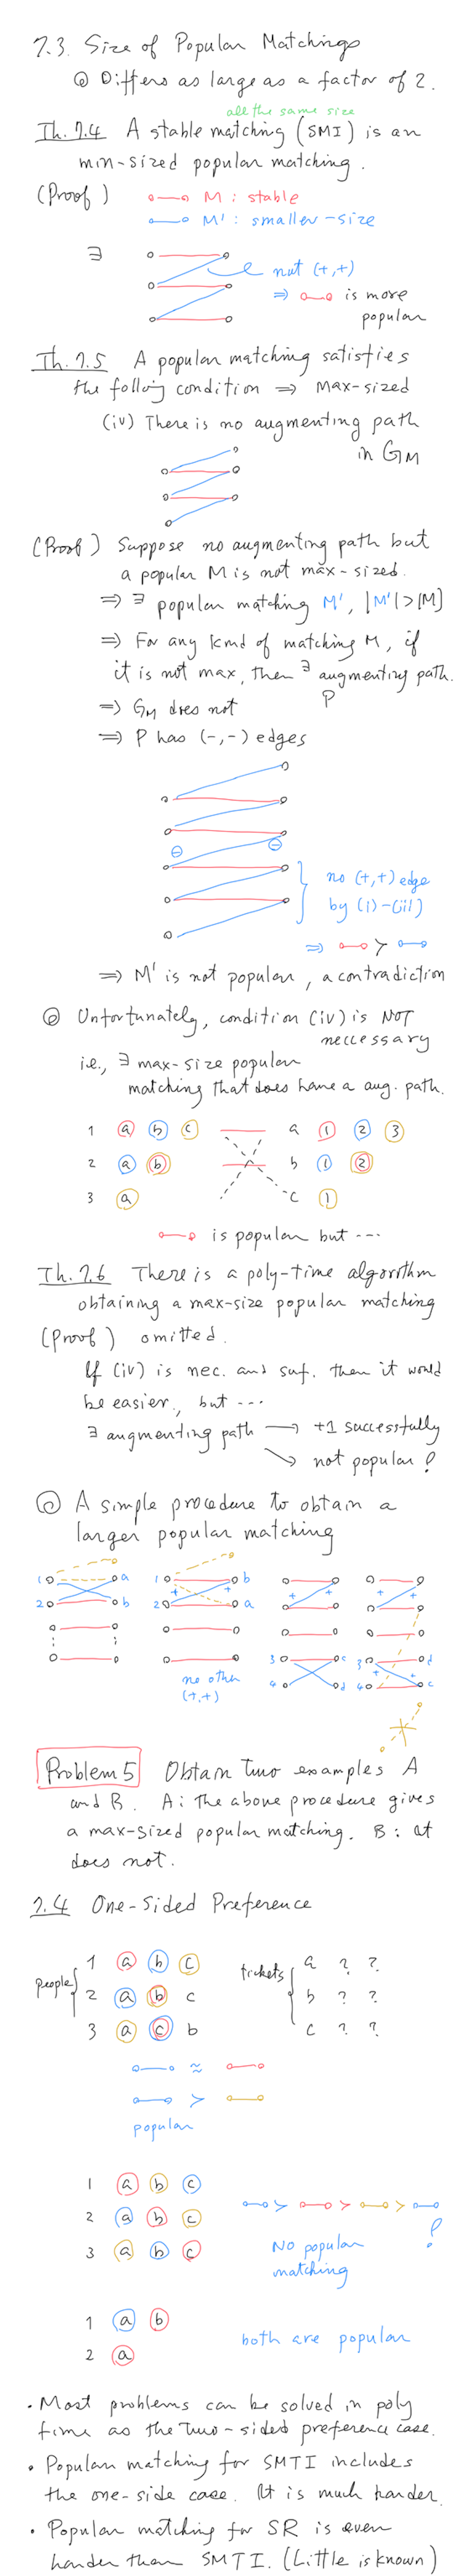 7.3. Size of Popular Matchings
◎ Differs as large as a factor of 2.
all the same size
Th. 7.4 A stable matching (SMI) is an
min-sized popular matching.
(Proof) M : stable
M' : smaller-size
∃ not (+,+)
⇒ is more
popular
Th. 7.5 A popular matching satisfies
the folloing condition ⇒ Max-sized
(iv) There is no augmenting path
in G_M
(Proof) Suppose no augmenting path but
a popular M is not max-sized.
⇒ ∃ popular matching M', |M'|>|M|
⇒ For any kind of matching M, if
it is not max, then ∃ augmenting path.
P
⇒ G_M does not
⇒ P has (-,-) edges
⊖ ⊖
no (+,+) edge
by (i)-(iii)
⇒ >
⇒ M' is not popular, a contradiction
◎ Unfortunately, condition (iv) is NOT
neccessary
i.e., ∃ max-size popular
matching that does have a aug. path.
1 a b c a 1 2 3
2 a b b 1 2
3 a c 1
is popular but ---
Th. 7.6 There is a poly-time algorithm
obtaining a max-size popular matching
(Proof) omitted.
If (iv) is nec. and suf. then it would
be easier, but ---
∃ augmenting path → +1 successfully
↘ not popular ?
◎ A simple procedure to obtain a
larger popular matching
1 a 1 b + +
2 b 2 + + a
3 c 3 d
4 d 4 + + c
no other
(+,+)
Problem 5 Obtain two examples A
and B. A: The above procedure gives
a max-sized popular matching. B: it
does not.
7.4 One-Sided Preference
people tickets
1 a b c a ? ?
2 a b c b ? ?
3 a c b c ? ?
≈
>
popular
1 a b c
2 a b c > > >
3 a b c ?
No popular
matching
1 a b
2 a both are popular
• Most problems can be solved in poly
time as the two-sided preference case.
• Popular matching for SMTI includes
the one-side case. It is much harder.
• Popular matching for SR is even
harder than SMTI. (Little is known)